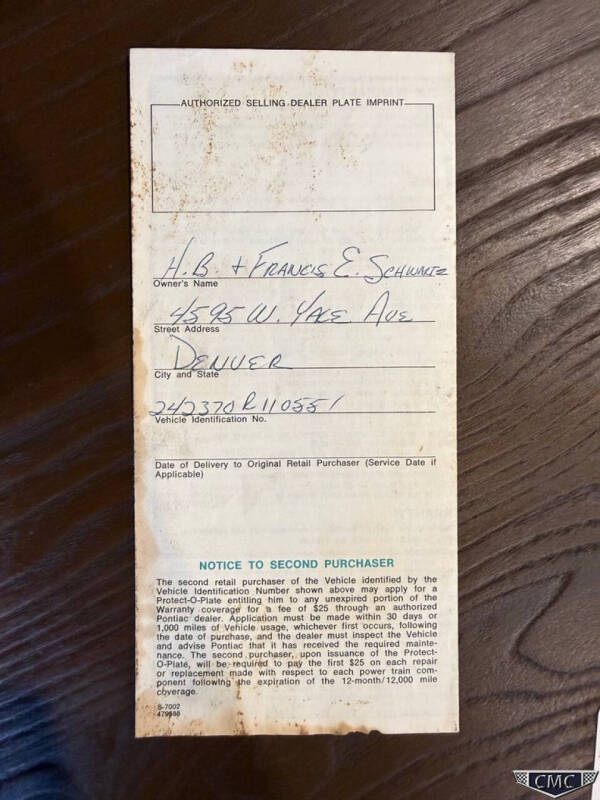 AUTHORIZED SELLING DEALER PLATE IMPRINT
H.B. + FRANCIS E. SCHWARTZ
Owner's Name
4595 W. YALE AVE
Street Address
DENVER
City and State
242370R110551
Vehicle Identification No.
Date of Delivery to Original Retail Purchaser (Service Date if
Applicable)
NOTICE TO SECOND PURCHASER
The second retail purchaser of the Vehicle identified by the
Vehicle Identification Number shown above may apply for a
Protect-O-Plate entitling him to any unexpired portion of the
Warranty coverage for a fee of $25 through an authorized
Pontiac dealer. Application must be made within 30 days or
1,000 miles of Vehicle usage, whichever first occurs, following
the date of purchase, and the dealer must inspect the Vehicle
and advise Pontiac that it has received the required mainte-
nance. The second purchaser, upon issuance of the Protect-
O-Plate, will be required to pay the first $25 on each repair
or replacement made with respect to each power train com-
ponent following the expiration of the 12-month/12,000 mile
coverage.
S-7002
CMC